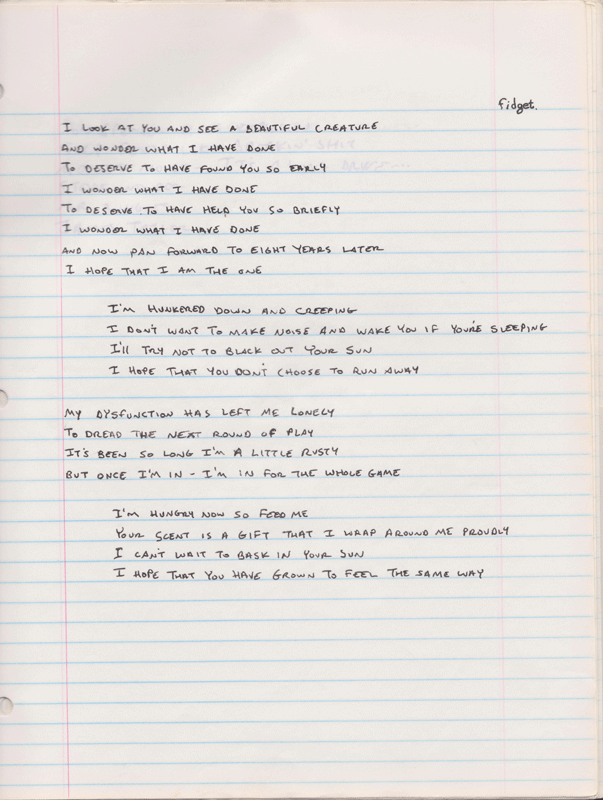 fidget.
I LOOK AT YOU AND SEE A BEAUTIFUL CREATURE
AND WONDER WHAT I HAVE DONE
TO DESERVE TO HAVE FOUND YOU SO EARLY
I WONDER WHAT I HAVE DONE
TO DESERVE TO HAVE HELD YOU SO BRIEFLY
I WONDER WHAT I HAVE DONE
AND NOW PAN FORWARD TO EIGHT YEARS LATER
I HOPE THAT I AM THE ONE
I'M HUNKERED DOWN AND CREEPING
I DON'T WANT TO MAKE NOISE AND WAKE YOU IF YOU'RE SLEEPING
I'LL TRY NOT TO BLACK OUT YOUR SUN
I HOPE THAT YOU DON'T CHOOSE TO RUN AWAY
MY DYSFUNCTION HAS LEFT ME LONELY
TO DREAD THE NEXT ROUND OF PLAY
IT'S BEEN SO LONG I'M A LITTLE RUSTY
BUT ONCE I'M IN - I'M IN FOR THE WHOLE GAME
I'M HUNGRY NOW SO FEED ME
YOUR SCENT IS A GIFT THAT I WRAP AROUND ME PROUDLY
I CAN'T WAIT TO BASK IN YOUR SUN
I HOPE THAT YOU HAVE GROWN TO FEEL THE SAME WAY